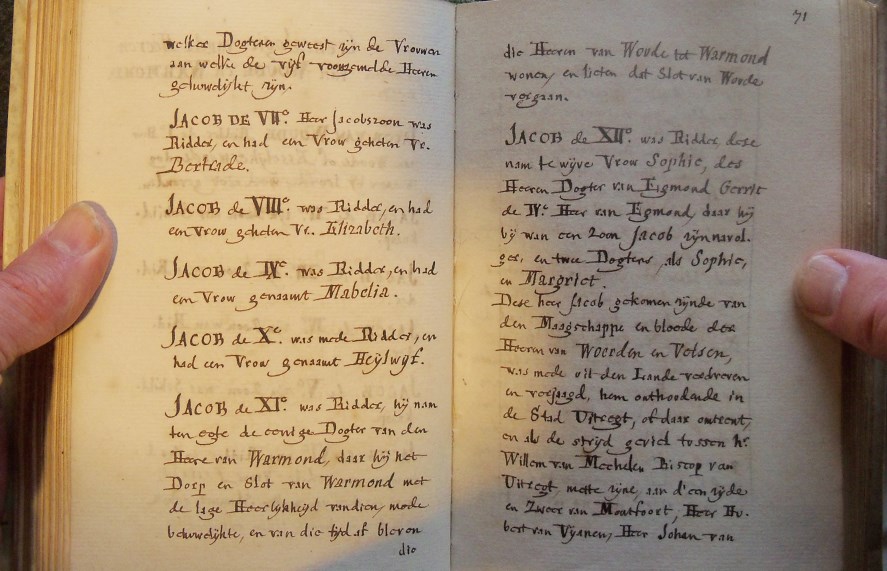 welker Dogteren geweest zijn de Vrouwen
aan welke de vijf voorgemelde Heeren
gehuwelijkt zijn.
JACOB DE VII.e Heer Jacobszoon was
Ridder, en had een Vrow geheten Vr.
Bertrade.
JACOB de VIII.e was Ridder, en had
een Vrow geheten Vr. Elizabeth.
JACOB de IX.e was Ridder, en had
een Vrow genaamt Mabelia.
JACOB de X.e was mede Ridder, en
had een Vrow genaamt Heijlwijf.
JACOB de XI.e was Ridder, hij nam
ten egte de eenige Dogter van den
Heere van Warmond, daar hij het
Dorp en Slot van Warmond met
de lage Heerlijkheijd vandien, mede
behuwelijkte, en van die tijd af bleven
die
71
die Heeren van Woude tot Warmond
wonen, en lieten dat Slot van Woude
vergaan.
JACOB de XII.e was Ridder, dese
nam te wijve Vrow Sophie, des
Heeren Dogter van Egmond Gerrit
de IV.e Heer van Egmond, daar hij
bij wan een Zoon Jacob zijn navol-
ger, en twee Dogters, als Sophie,
en Margriet.
Dese heer Jacob gekomen zijnde van
den Maagschappe en bloede der
Heeren van Woerden en Velsen,
was mede uit den Lande verdreven
en verjaagd, hem onthoudende in
de Stad Uitregt, of daar omtrent,
en als de strijd geviel tussen hr.
Willem van Mechelen Biscop van
Uitregt, mette zijne, aan d'een zijde
en Zweer van Montfoort, Heer Hu-
bert van Vijanen, Heer Johan van